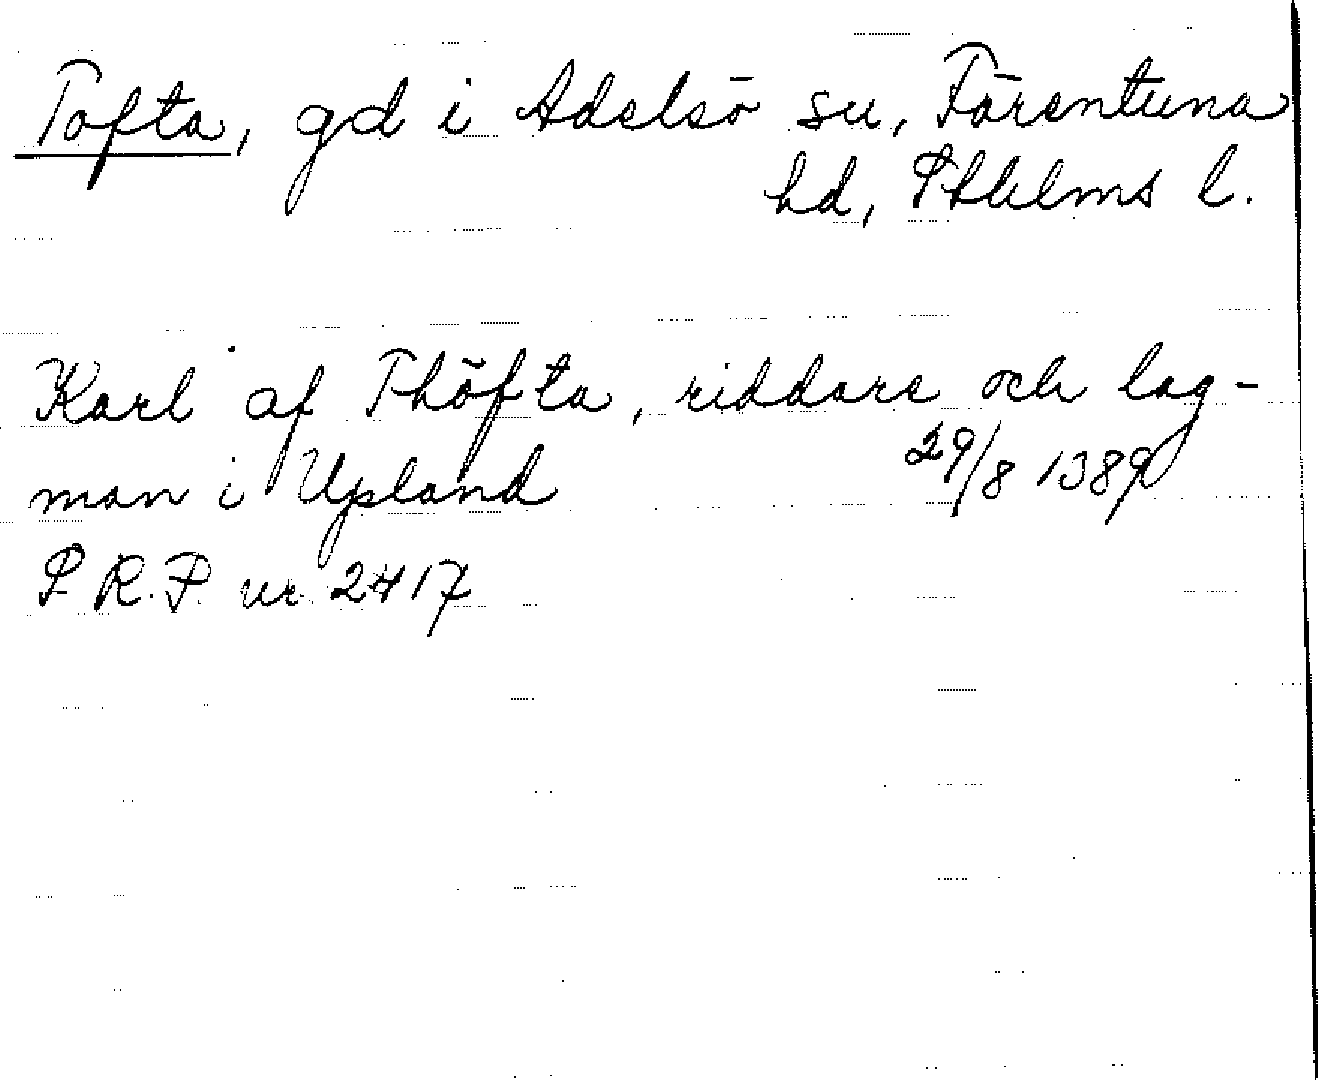 Tofta, gd i Adelsö sn, Färentuna
hd, Sthlms l.
Karl af Thöfta, riddare och lag-
man i Upland 29/8 1389
S R.P. nr 2417